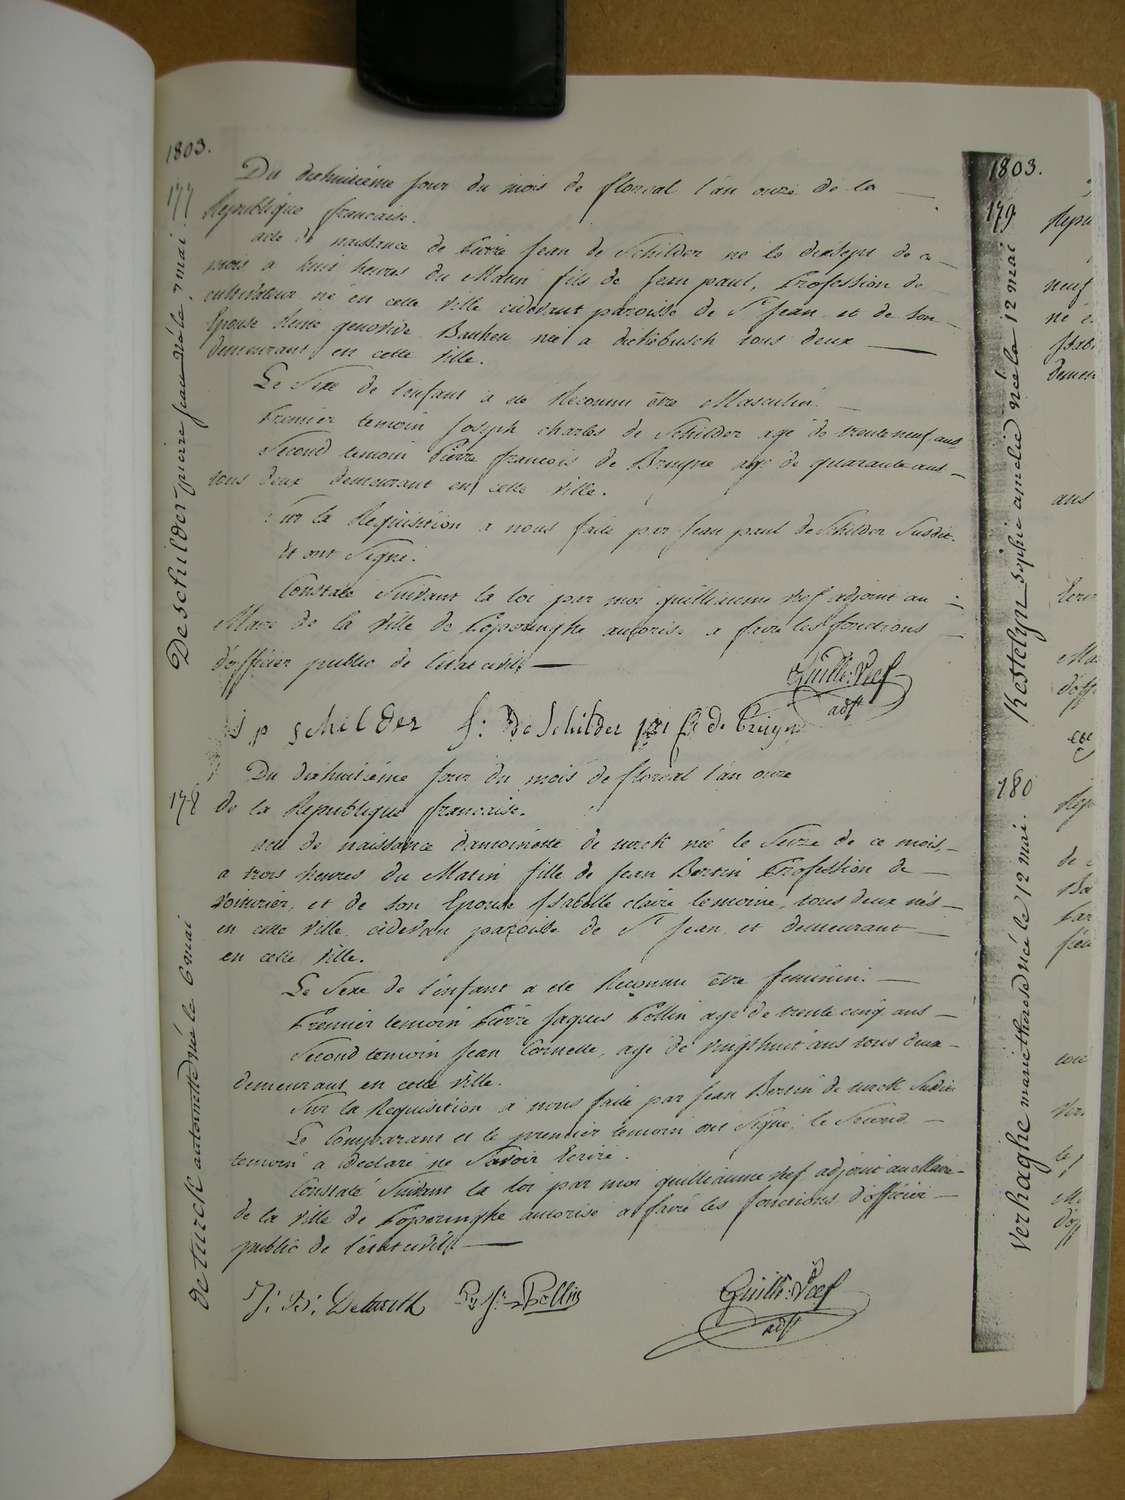 1803.
177
De schilder pierre jean né le 7 mai
Du dixhuitième jour du mois de floreal l'an onze de la
Republique francaise.
acte de naissance de Pierre Jean de Schilder né le dixsept de ce
mois a huit heures du Matin fils de Jean paul, Profession de
cultivateur né en cette ville cidevant paroisse de St Jean et de Son
Epouse Reine genovive née a dickebusch tous deux
demeurant en cette ville.
Le Sexe de l'enfant a ete Reconnu être Masculin.
Premier temoin Joseph charles de Schilder agé de trenteneuf ans
Second temoin Pierre francois de Bruyne agé de quarante ans
tous deux demeurant en cette ville.
Sur la Requisition a nous faite par Jean paul de Schilder Susdit.
Et ont Signé.
Constaté Suivant la loi par moi guilliaume Vief adjoint au
Maire de la ville de Poperinghe autorisé a faire les fonctions
d'officier public de l'état civil
Guill: Vief
adjt
J p schilder J: De Schilder p f de Bruyne
178
de turck antoinette née le 6 mai
Du dixhuitième jour du mois de floreal l'an onze
de la Republique francaise.
acte de naissance d'antoinette de turck née le Seize de ce mois,
a trois heures du Matin fille de Jean Bertin Profession de
voiturier, et de Son Epouse Isabelle claire lemoine, tous deux nés
en cette ville, cidevan paroisse de St Jean et demeurant
en cette ville.
Le Sexe de l'enfant a ete Reconnu être feminin.
Premier temoin Pierre Jaques Pollin agé de trente cinq ans
Second temoin Jean Cornelle, agé de vingthuit ans tous deux
demeurant en cette ville.
Sur la Requisition a nous faite par Jean Bertin de turck Susdit
Le Comparant et le premier temoin ont Signé, le Second
temoin a Declaré ne Savoir Ecrire.
Constaté Suivant la loi par moi guilliaume Vief adjoint au Maire
de la ville de Poperinghe autorisé a faire les fonctions d'officier
public de l'état civil
J: B: Deturck P: J: Pollin
Guill: Vief
adjt
1803.
179
Kestelyn Sophie amelie née le 12 mai
Repu
neuf
demeu
ans
180
verhaghe marie therese née le 12 mai.